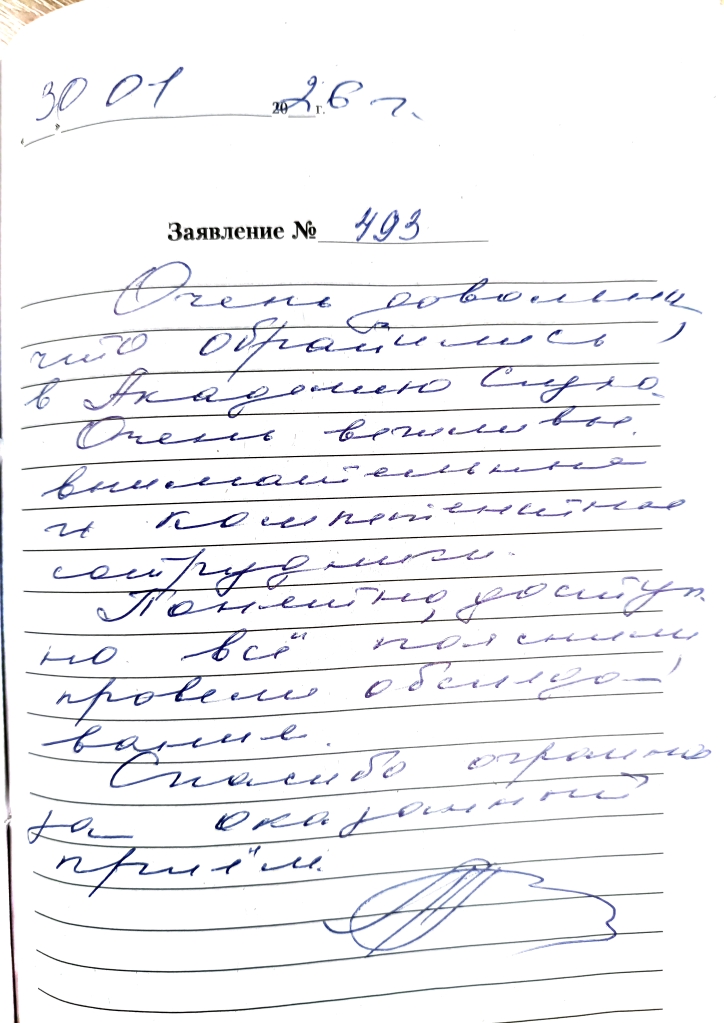 30 01 2026 г.
Заявление № 493
Очень довольны,
что обратились
в Академию Слуха.
Очень вежливые,
внимательные
и компетентные
сотрудники.
Понятно, доступ-
но всё пояснили,
провели обследо-
вание.
Спасибо огромное
за оказанный
приём.